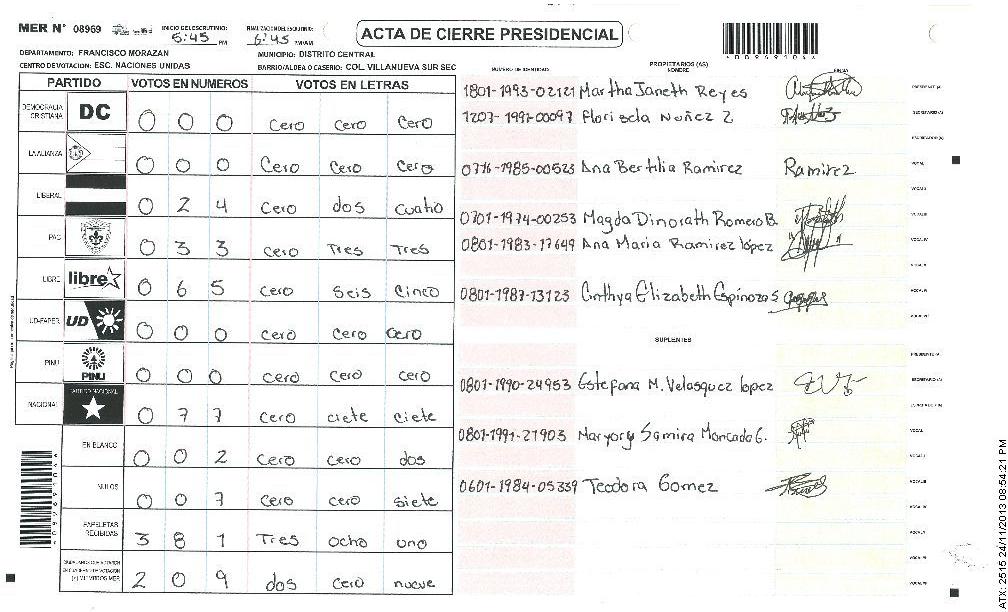 MER N° 08969
INICIO DEL ESCRUTINIO: 5:45 PM
FINALIZACION DEL ESCRUTINIO: 6:45 PM/AM
ACTA DE CIERRE PRESIDENCIAL
DEPARTAMENTO: FRANCISCO MORAZAN
MUNICIPIO: DISTRITO CENTRAL
CENTRO DE VOTACION: ESC. NACIONES UNIDAS
BARRIO/ALDEA O CASERIO: COL. VILLANUEVA SUR SEC
PARTIDO VOTOS EN NUMEROS VOTOS EN LETRAS
DEMOCRACIA CRISTIANA DC 0 0 0 Cero Cero Cero
LA ALIANZA 0 0 0 Cero Cero Cero
LIBERAL 0 2 4 Cero dos Cuatro
PAC 0 3 3 Cero Tres Tres
LIBRE libre 0 6 5 Cero Seis Cinco
UD-FAPER UD 0 0 0 Cero Cero Cero
PINU PINU 0 0 0 Cero Cero Cero
NACIONAL PARTIDO NACIONAL 0 7 7 Cero Ciete Ciete
EN BLANCO 0 0 2 Cero Cero dos
NULOS 0 0 7 Cero Cero Siete
PAPELETAS RECIBIDAS 3 8 1 Tres Ocho uno
2 0 9 dos Cero nueve
NUMERO DE IDENTIDAD
PROPIETARIOS (AS)
NOMBRE
FIRMA
1801-1993-02121 Martha Janeth Reyes PRESIDENTE (A)
1207-1991-00097 Florisela Nuñez Z SECRETARIO (A)
ESCRUTADOR (A)
0716-1985-00523 Ana Bertilia Ramirez Ramirez
0701-1974-00253 Magda Dinorath Romero B.
0801-1983-17649 Ana Maria Ramirez lopez
0801-1987-13123 Cinthya Elizabeth Espinoza S
SUPLENTES
PRESIDENTE (A)
0801-1990-24953 Estefana M. Velasquez lopez SECRETARIO (A)
ESCRUTADOR (A)
0801-1991-21903 Maryory Samira Moncada G.
0601-1984-05339 Teodora Gomez
08969106
ATX: 2515 24/11/2013 08:54:21 PM